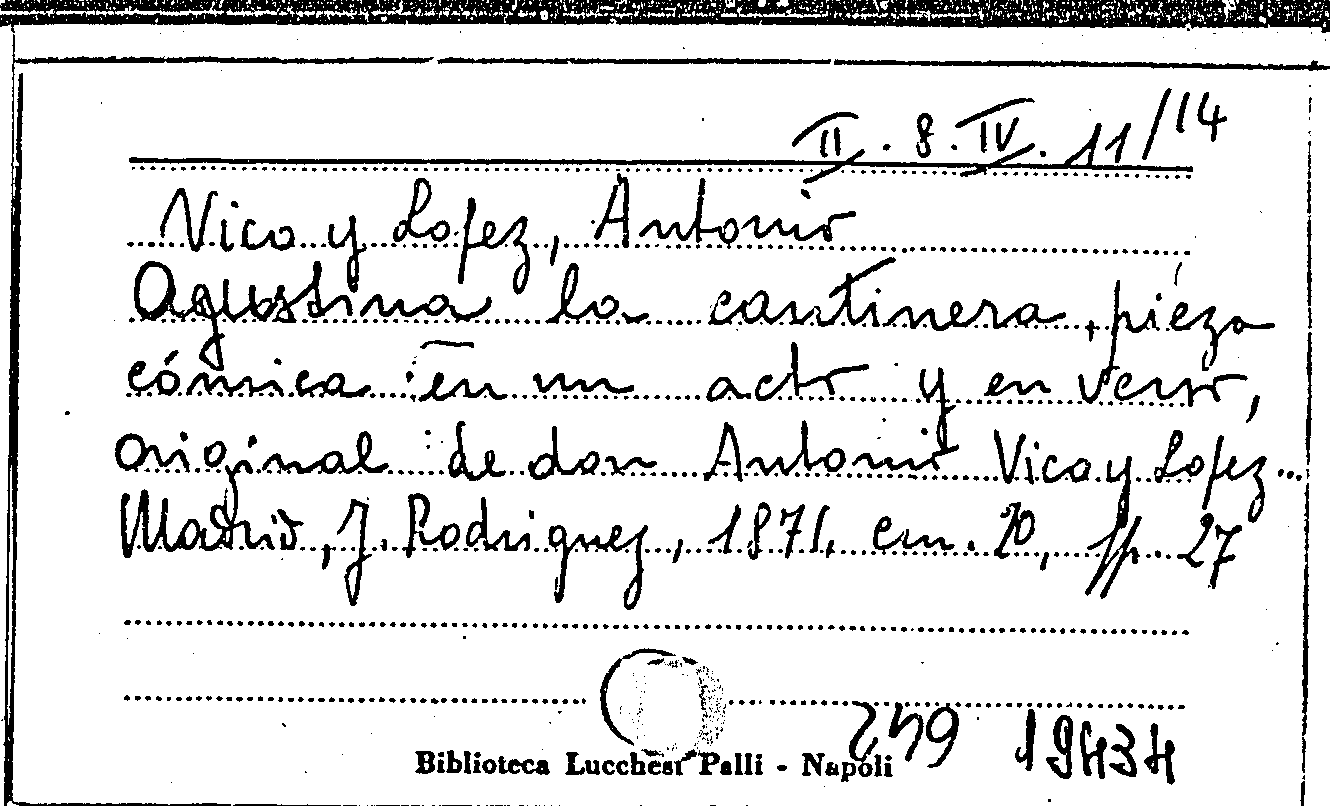 II. 8. IV. 11/14
Vico y Lopez, Antonio
Agustina la cantinera, pieza
cómica en un acto y en verso,
original de don Antonio Vico y Lopez...
Madrid, J. Rodriguez, 1871, cm. 20, pp. 27
249 19434
Biblioteca Lucchesi Palli - Napoli